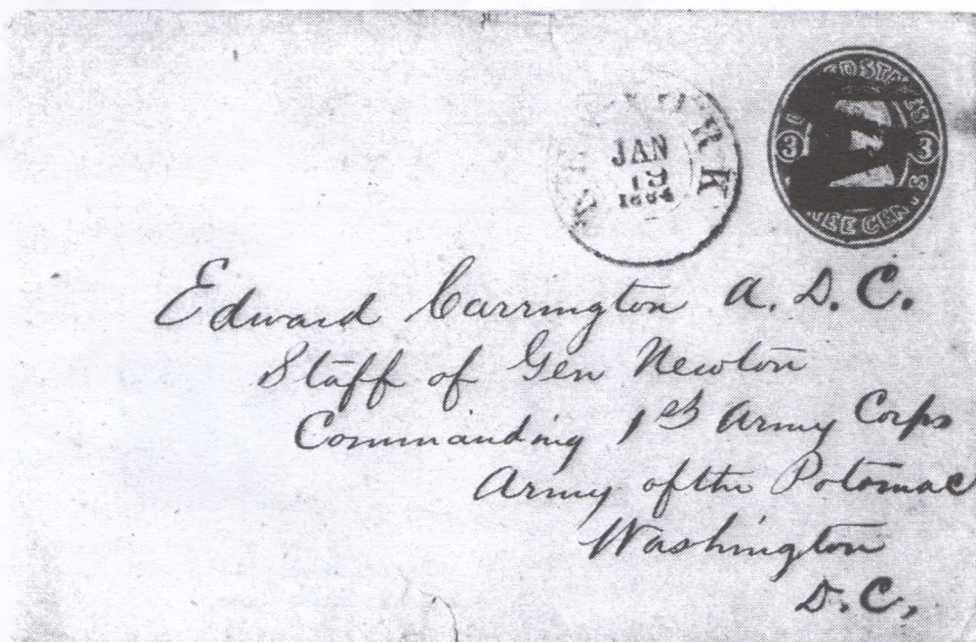 JAN
19
1864
3 3
THREE CENTS
Edward Carrington A. D. C.
Staff of Gen Newton
Commanding 1st Army Corps
Army of the Potomac
Washington
D.C.